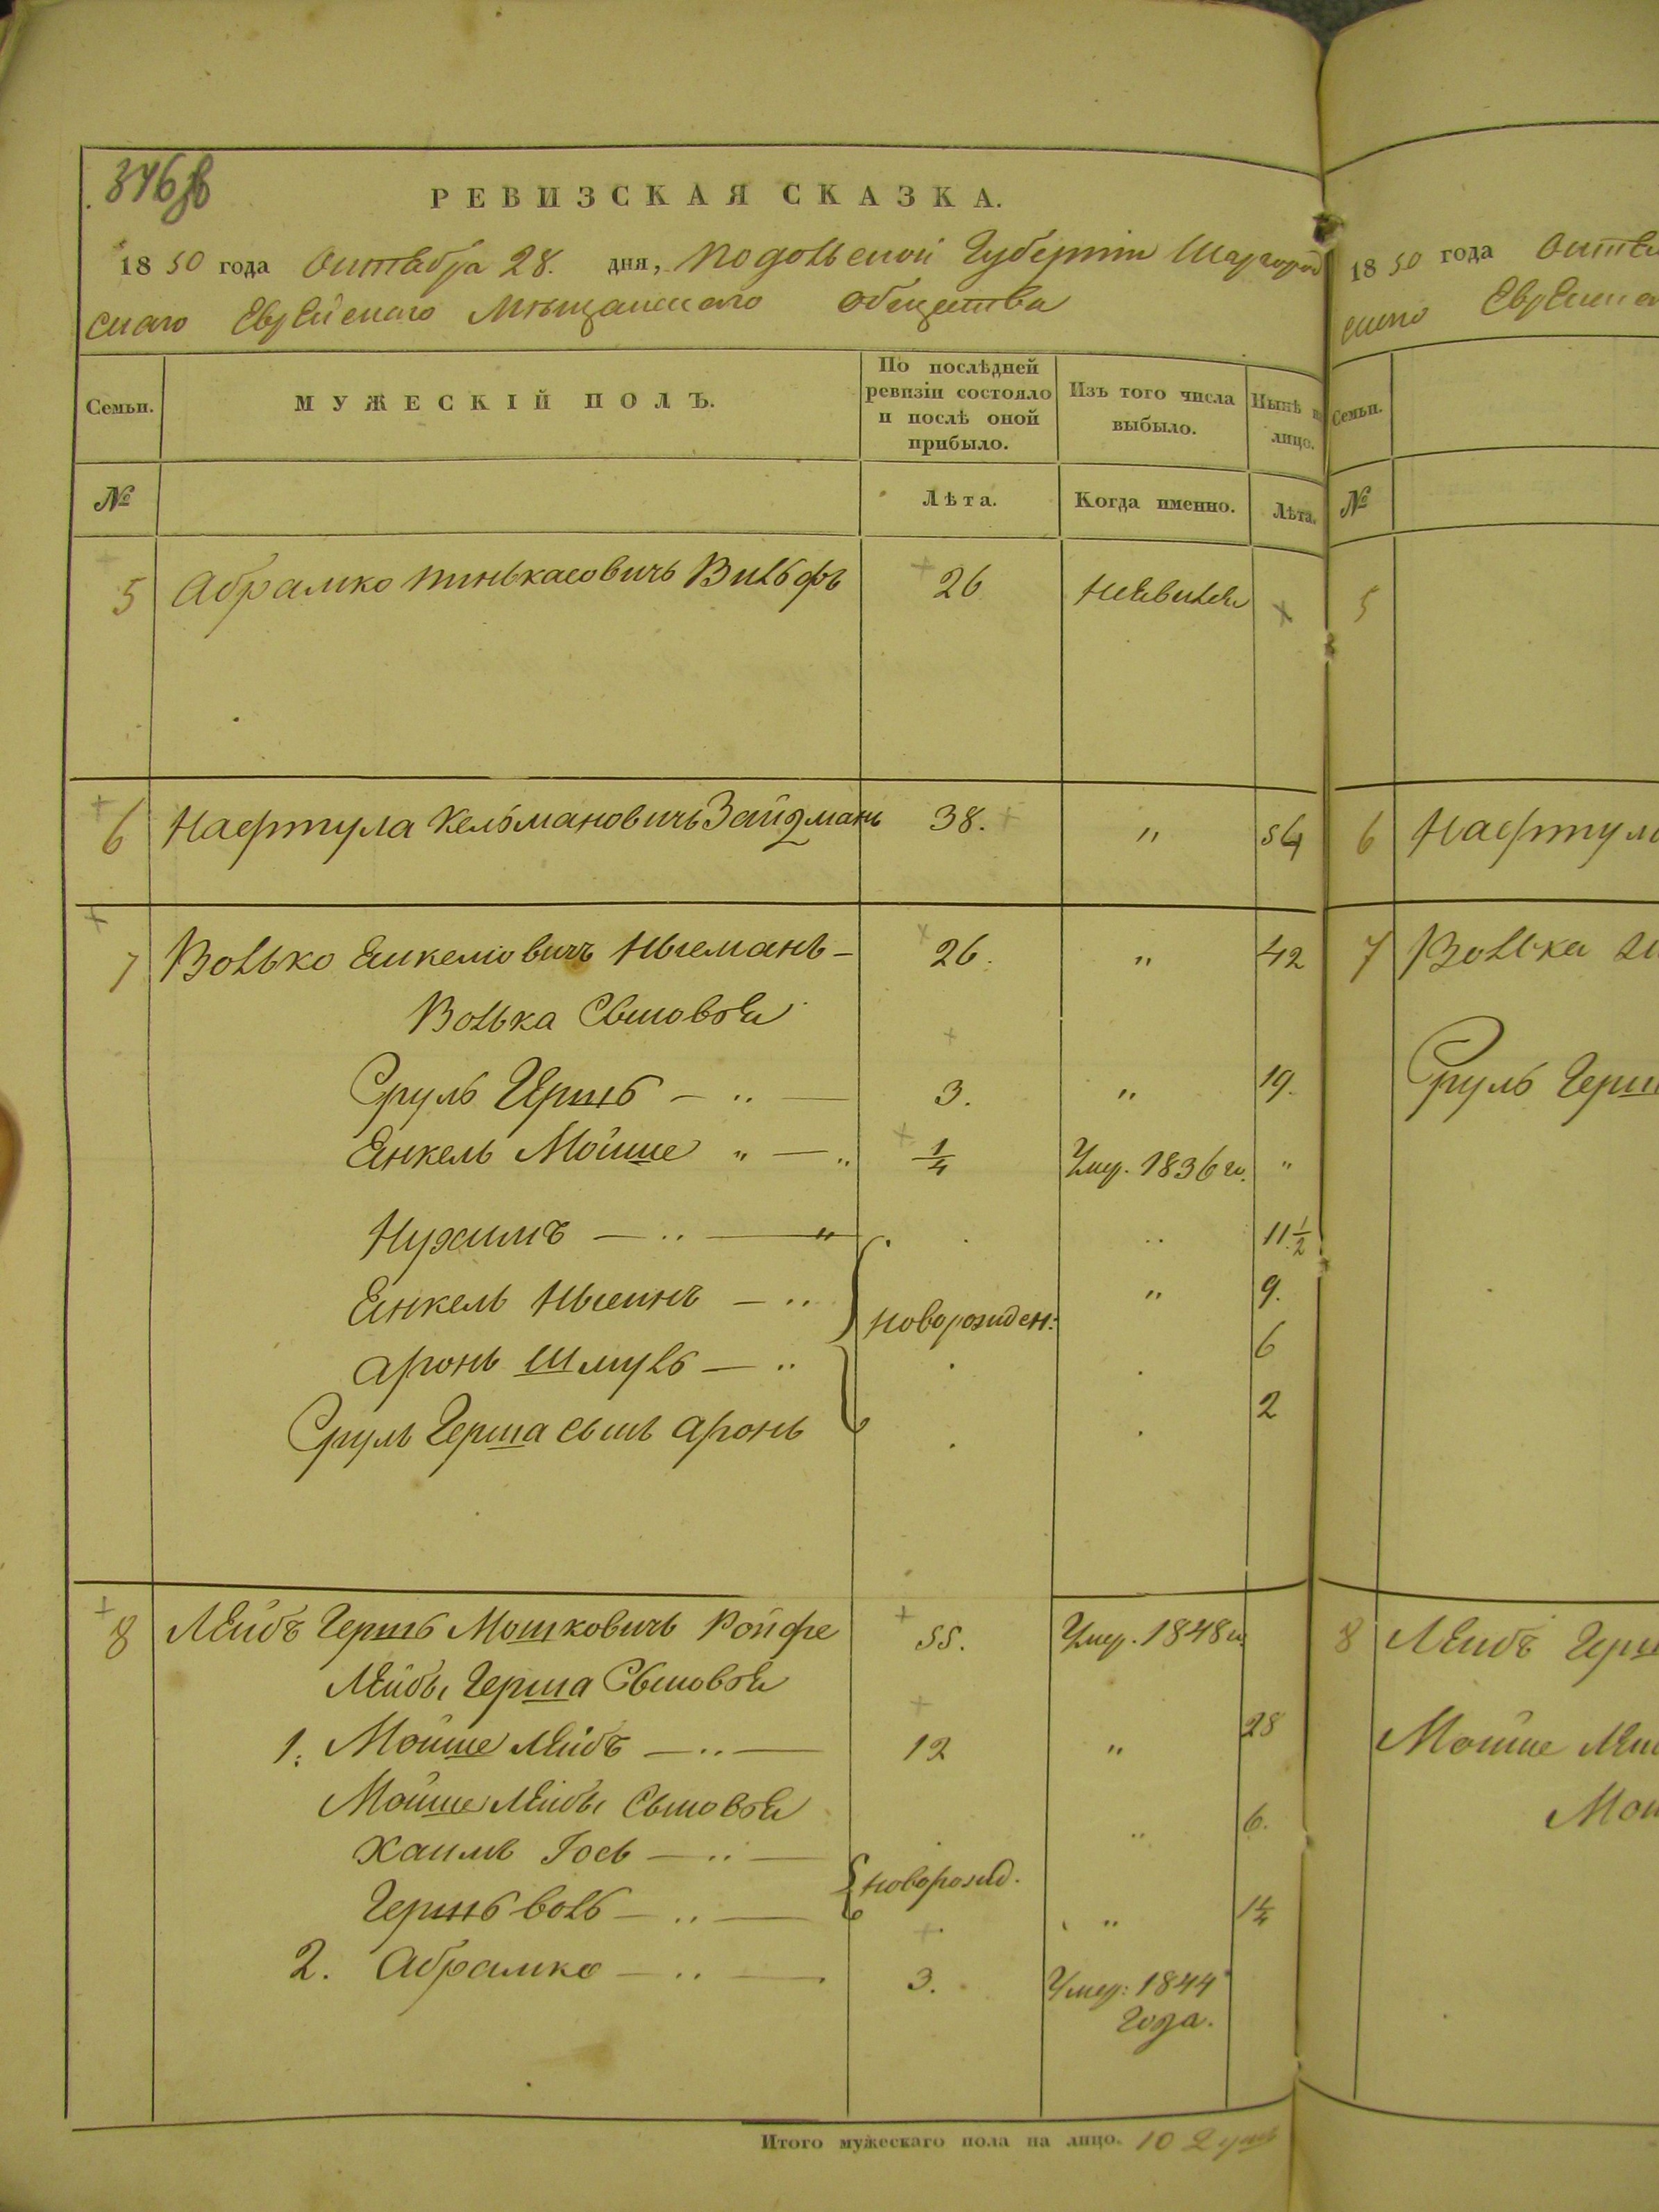 РЕВИЗСКАЯ СКАЗКА.
1850 года Октября 28. дня, Подольской Губернiи Шаргород
скаго Еврейскаго Мѣщанскаго общества
Семьи.
МУЖЕСКIЙ ПОЛЪ.
По послѣдней ревизiи состояло и послѣ оной прибыло.
Изъ того числа выбыло.
Нынѣ на лицо.
№
Лѣта.
Когда именно.
Лѣта.
5 Абрамко Пинькасовичь Вильфъ 26 неявился
6 Нафтула Кельмановичь Зайдмань 38. " 54
7 Волько Янкелiовичъ Нысманъ - 26. " 42
Волька Сыновья
Сруль Гершъ — " — 3. " 19.
Янкель Мойше " — " 1/4 Умер. 1836 го. "
Нухимъ — " — " " 11 1/2
Янкель Нысинъ — " " 9.
новорожден:
Аронь Шмуль — " 6
Сруль Герша сынъ Аронь 2
8 Лейбъ Гершъ Мошковичь Ройфе 55. Умер. 1848 го
Лейбы Герша Сыновья
1. Мойше Лейбъ — " — 12 " 28
Мойше Лейбы Сыновья
Хаимъ Iось — " — " 6.
новорожд.
Гершъ Воль — " — " 1 1/4
2. Абрамко — " — 3. Умер: 1844
года.
Итого мужескаго пола на лицо. 10 душъ
1850 года Октя
Еврейска
Семьи.
№
5
6 Нафтул
7 Волька
Сруль Герш
8 Лейбъ Герш
Мойше Лей
Мой